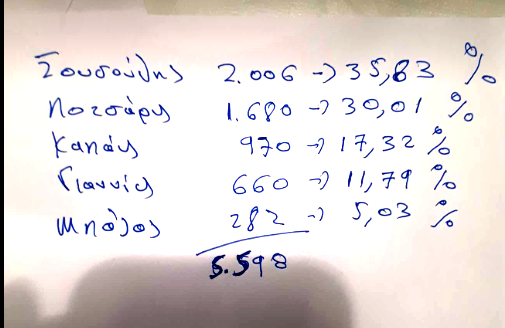 Σουσούδης 2.006 → 35,83 %
Ποτσάρης 1.680 → 30,01 %
Καπάς 970 → 17,32 %
Γιαννίς 660 → 11,79 %
Μπόλος 282 → 5,03 %
5.598